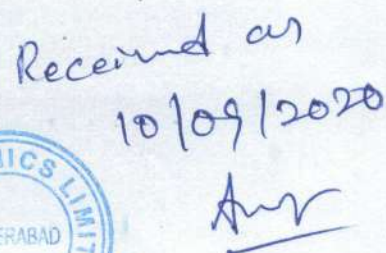 Received on
10/09/2020
NICS LIMIT
ERABAD